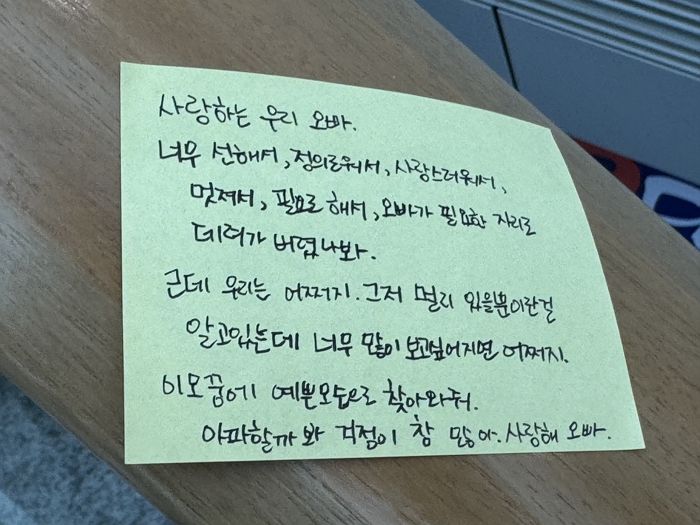 사랑하는 우리 오빠.
너무 선해서, 정의로워서, 사랑스러워서,
멋져서, 필요로 해서, 오빠가 필요한 자리로
데려가 버렸나봐.
근데 우리는 어쩌지. 그저 멀리 있을뿐이란걸
알고있는데 너무 많이 보고싶어지면 어쩌지.
이모꿈에 예쁜모습으로 찾아와줘.
아파할까봐 걱정이 참 많아. 사랑해 오빠.